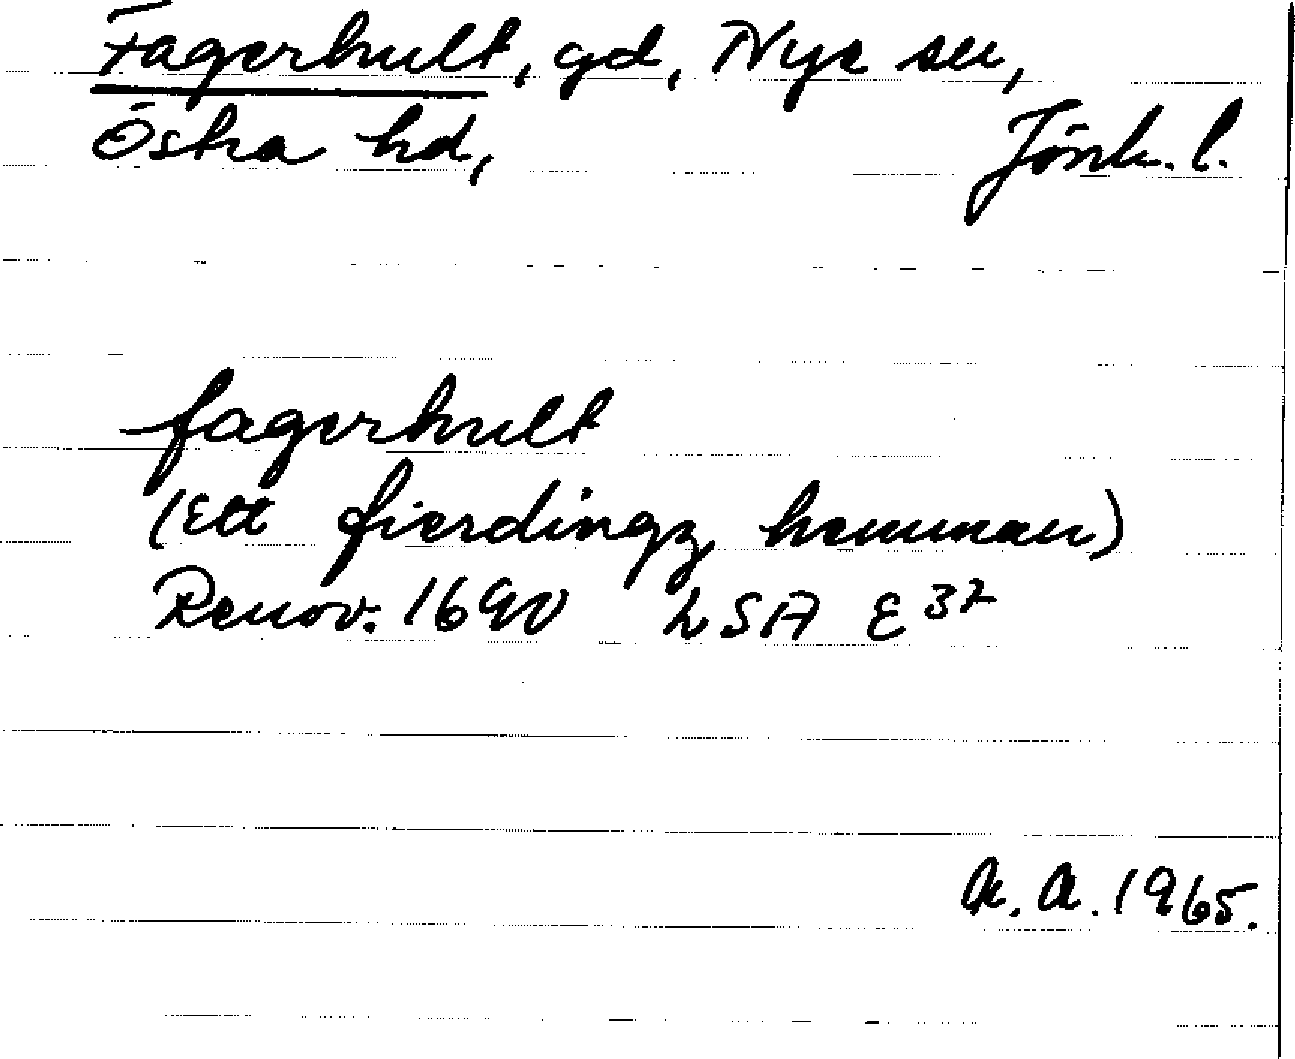 Fagerhult, gd, Nye sn,
Östra hd, Jönk. l.
fagerhult
(Ett fierdingz hemman)
Renov. 1690 LSA E 37
A. A. 1965.